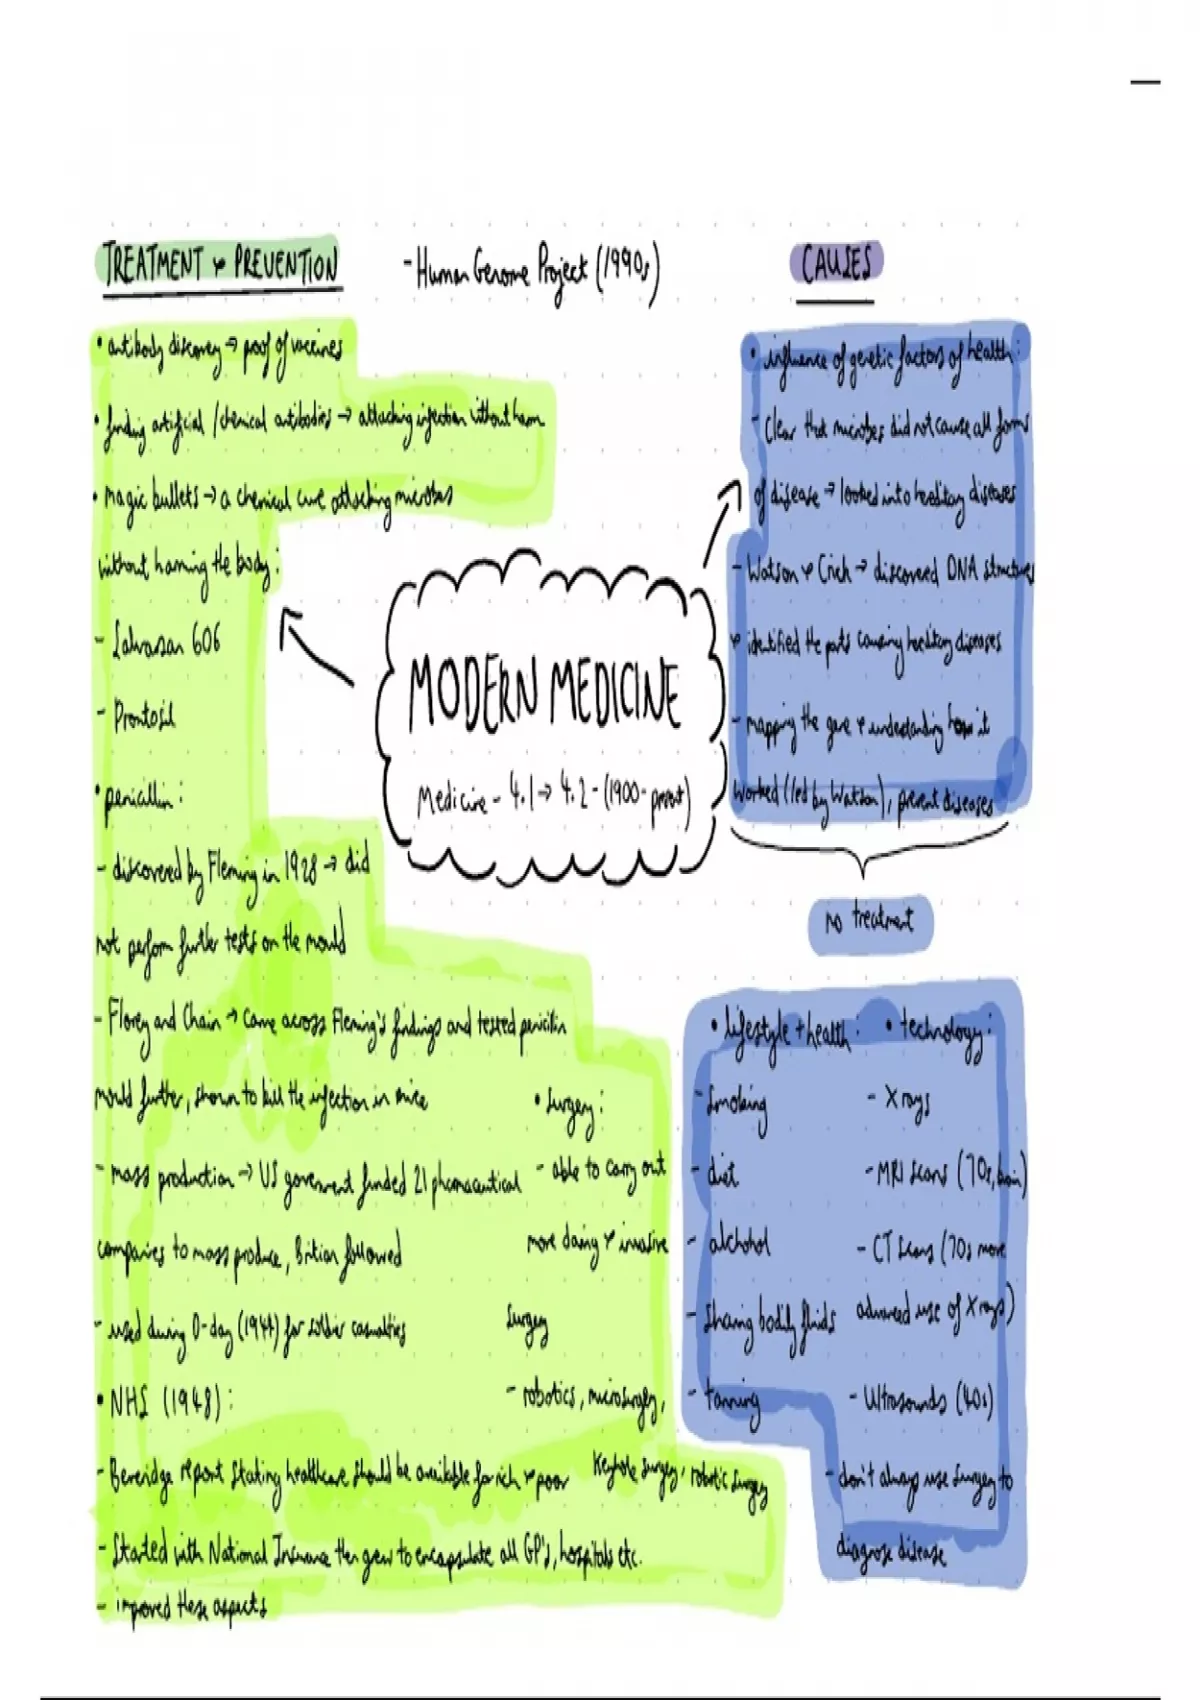 TREATMENT & PREVENTION
• antibody discovery → proof of vaccines
• finding artificial / chemical antibodies → attacking infection without harm
• magic bullets → a chemical cure attacking microbes
without harming the body:
- Salvarsan 606
- Prontosil
• penicillin:
- discovered by Fleming in 1928 → did
not perform further tests on the mould
- Florey and Chain → came across Fleming's findings and tested penicillin
mould further, shown to kill the infection in mice
- mass production → US government funded 21 pharmaceutical
companies to mass produce, Britian followed
- used during D-day (1944) for soldier casualties
• NHS (1948):
- Beveridge report stating healthcare should be available for rich & poor
- Started with National Insurance then grew to encapsulate all GP's, hospitals etc.
- improved these aspects
• surgery:
- able to carry out
more daring & invasive
surgery
- robotics, microsurgery,
keyhole surgery, robotic surgery
- Human Genome Project (1990s)
MODERN MEDICINE
Medicine - 4.1 → 4.2 - (1900 - present)
CAUSES
• influence of genetic factors of health:
- Clear that microbes did not cause all forms
of disease → looked into hereditary diseases
- Watson & Crick → discovered DNA structures
& identified the parts causing hereditary diseases
- mapping the gene & understanding how it
worked (led by Watson), prevent diseases
no treatment
• lifestyle + health:
- smoking
- diet
- alchohol
- sharing bodily fluids
- tanning
• technology:
- X rays
- MRI scans (70s, brain)
- CT scans (70s more
advanced use of X rays)
- Ultrasounds (40s)
- don't always use surgery to
diagnose disease